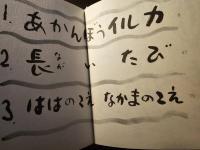 1. あかんぼうイルカ
2. 長ながい たび
3. ははのこえ なかまのこえ